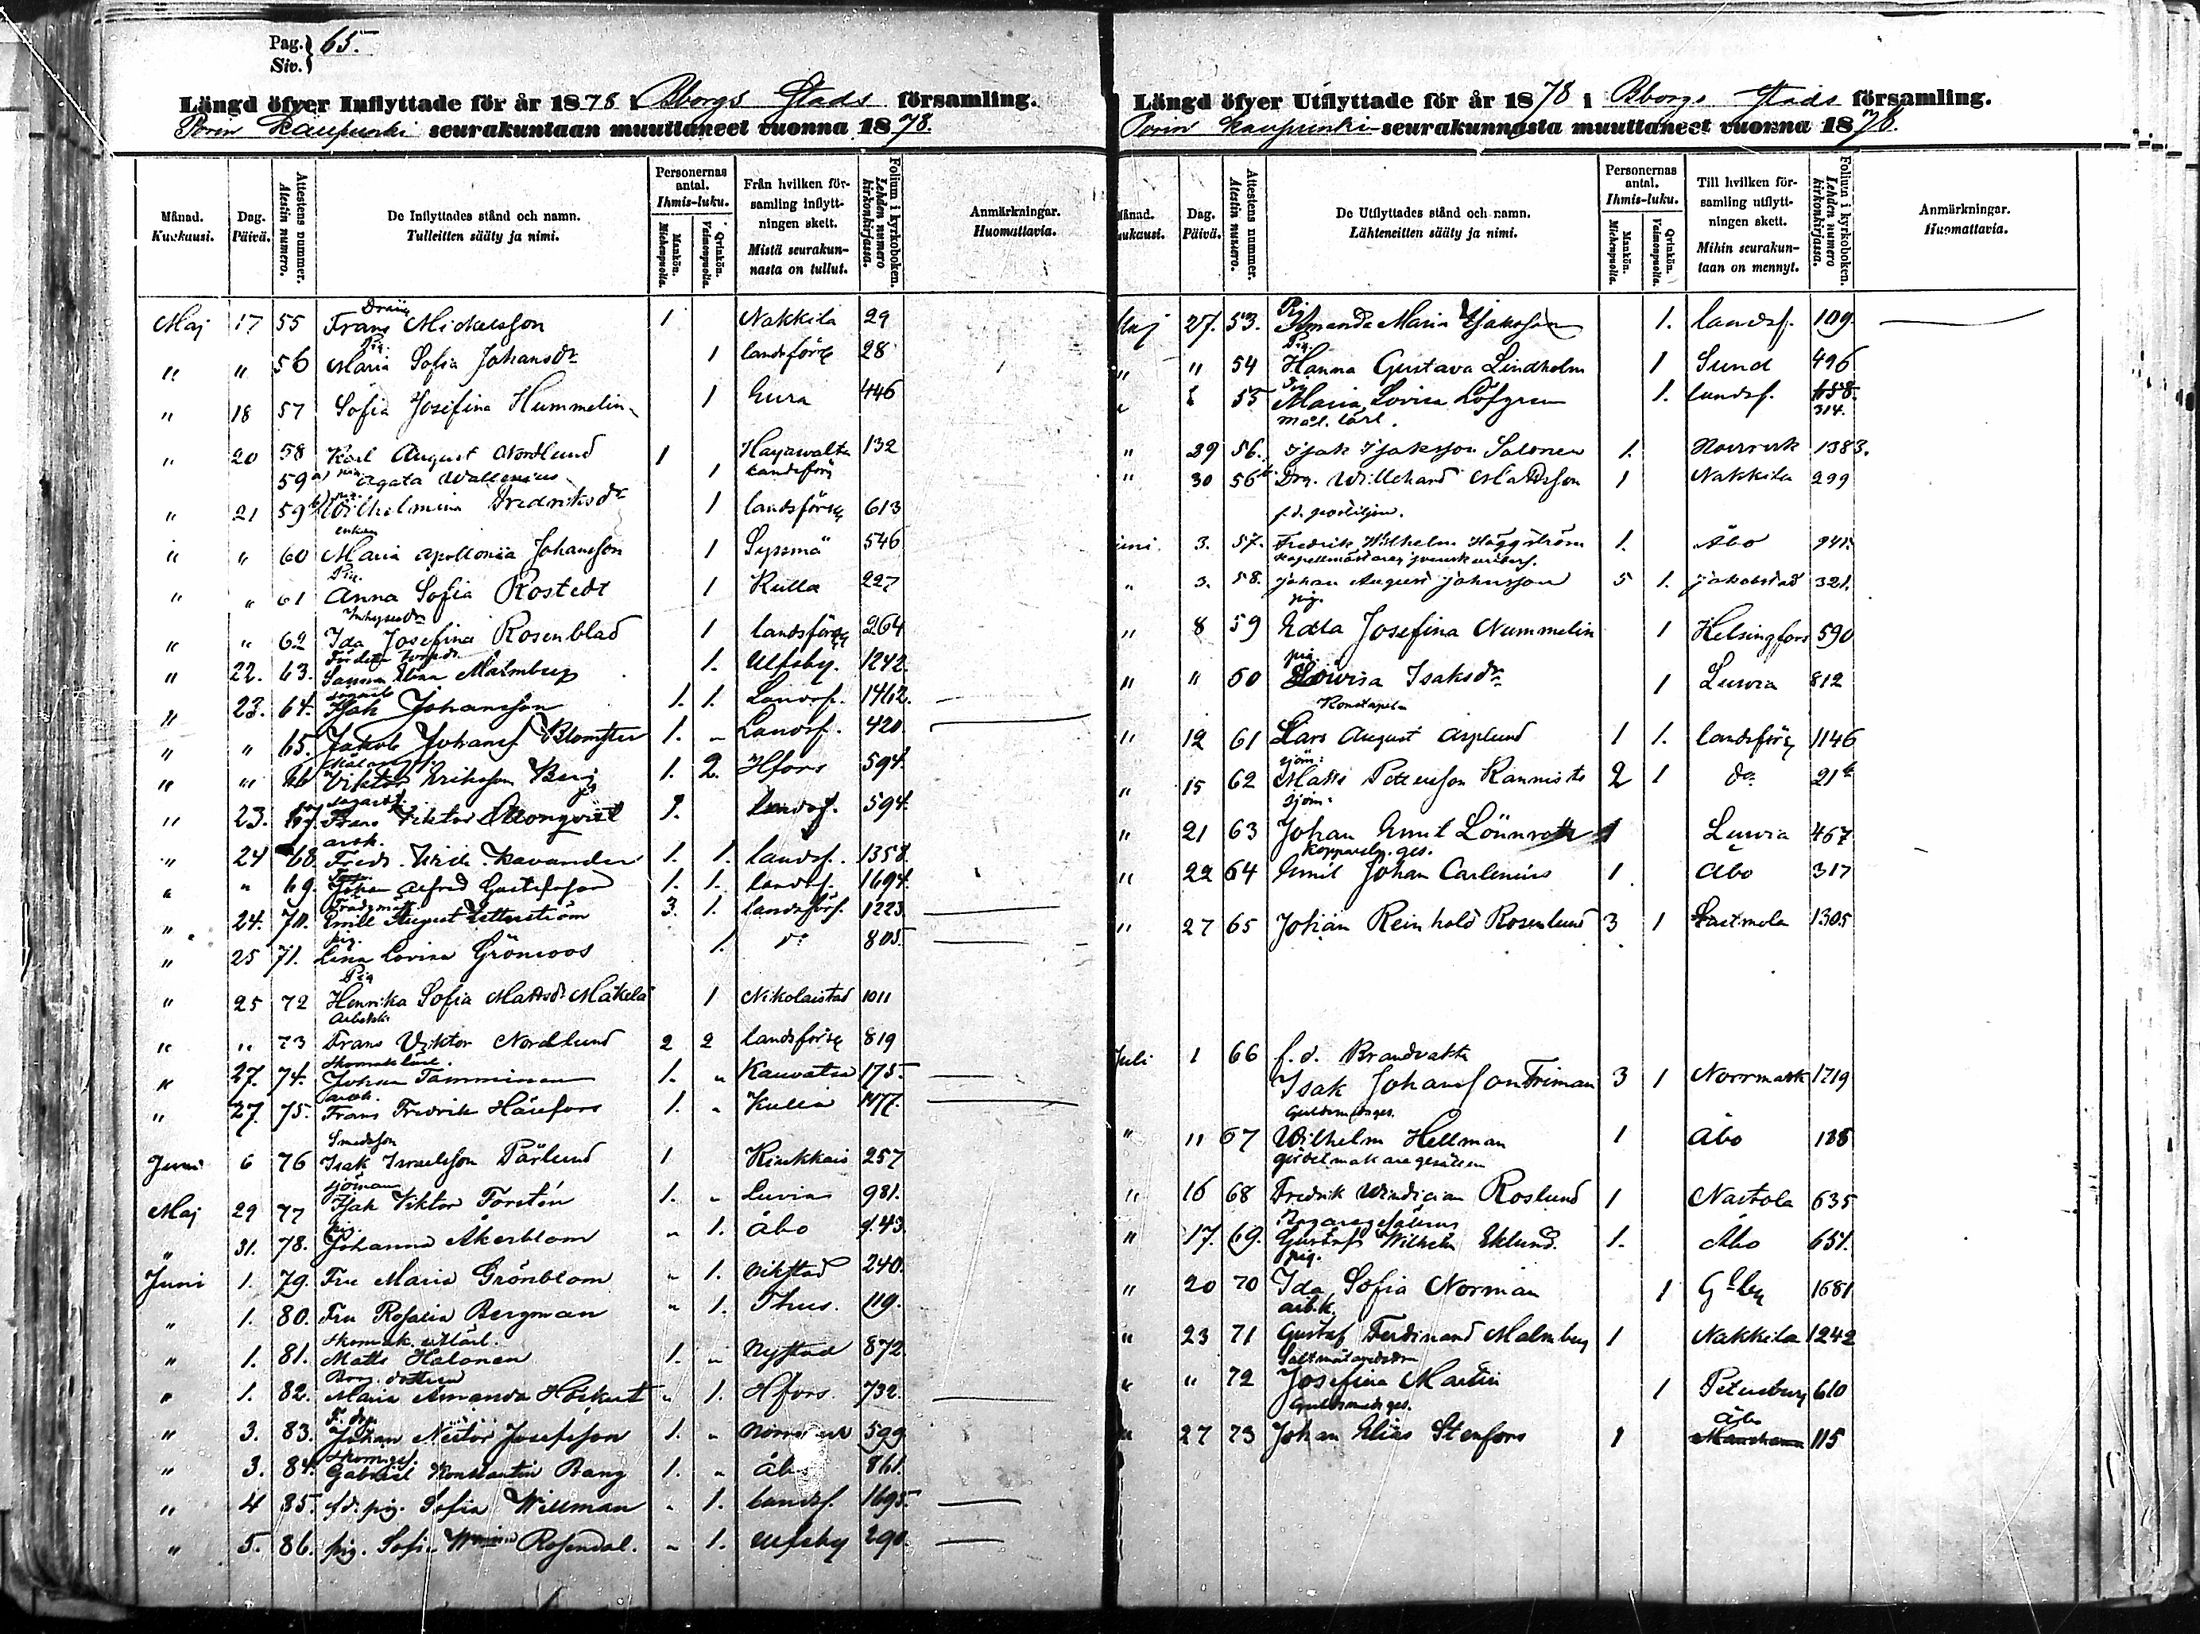 Pag. 65.
Siv.
Längd öfver Inflyttade för år 1878 i Bborgs Stads församling.
Porin kaupunki seurakuntaan muuttaneet vuonna 1878.
Månad. Kuukausi.
Dag. Päivä.
Attestens nummer. Atestin numero.
De Inflyttades stånd och namn. Tulleitten sääty ja nimi.
Personernas antal. Ihmis-luku.
Mankön. Miehenpuolta.
Qvinkön. Vaimonpuolta.
Från hvilken församling inflyttningen skett. Mistä seurakunnasta on tullut.
Folium i kyrkoboken. Lehden numero kirkonkirjassa.
Anmärkningar. Huomattavia.
Dräng
Maj 17 55 Frans Mickelsson 1 Nakkila 29
Pig.
" " 56 Maria Sofia Johansdr 1 landsförs 28
" 18 57 Sofia Josefina Hummelin 1 Eura 446
" 20 58 Karl August Nordlund 1 132
59 a) pig. Agata Wallenius 1 Landsförs
" 21 59 b) Wilhelmina Fredriksdr 1 landsförs 613
enkan
" " 60 Maria Apollonia Johansson 1 Sysmä 546
Pig.
" " 61 Anna Sofia Rostedt 1 Kulla 227
" " 62 Ida Josefina Rosenblad 1 landsförs 264
" 22. 63. Malmberg 1. Ulfsby. 1242.
" 23. 64. Isak Johansson 1. 1. Landsf. 1462.
" " 65. Jakob Johansf Blomster 1. " Landsf. 420.
" " 66 Viktor Eriksson Berg 1. 2. Hfors 594.
" 23. 67. Frans Viktor 1. landsf. 594.
arb.
" 24 68. Fredr. Wilh. Kavander 1. 1. landsf. 1358.
" " 69. Johan Alfred Gustafsson 1. 1. landsf. 1694.
" 24. 70. Emil August Zetterström 3. 1. landsförs. 1223
pig.
" 25 71. Lena Lovisa Grönroos 1. do 805.
Pig
" 25 72 Henrika Sofia Mattsdr Mäkelä 1 Nikolaistad 1011
" " 73 Frans Viktor Nordlund 2 2 landsförs 819
" 27. 74. Johan Tamminen 1. " Kauvatsa 175.
arb.
" 27. 75. Frans Fredrik Hänfors 1. " Kulla
Smedsson
Juni 6 76 Isak Israelsson Pärlund 1 Kiukkais 257
sjöman
Maj 29 77 Isak Viktor Forstén 1. " Luvia 981.
pig.
" 31. 78. Johanna Åkerblom " 1. Åbo 943.
Juni 1. 79. Fru Maria Grönblom " 1. Nikstad 240.
" 1. 80. Fru Rosalia Bergman " 1. Thus. 119.
" 1. 81. Matts Halonen 1. " Nystad 872.
" 1. 82. Maria Amanda Höckert " 1. Hfors. 732.
" 3. 83. Johan Nestor Josefsson 1. " 599
" 3. 84. Gabriel Konstantin Bang 1. " Åbo 861.
" 4 85. f.d. pig. Sofia Willman " 1. landsf. 1695.
" 5. 86. pig. Sofia Rosendal. " 1. Ulfsby 290.
Längd öfver Utflyttade för år 1878 i Bborgs Stads församling.
Porin kaupunki seurakunnasta muuttaneet vuonna 1878.
Månad. Kuukausi.
Dag. Päivä.
Attestens nummer. Atestin numero.
De Utflyttades stånd och namn. Lähteneitten sääty ja nimi.
Personernas antal. Ihmis-luku.
Mankön. Miehenpuolta.
Qvinkön. Vaimonpuolta.
Till hvilken församling utflyttningen skett. Mihin seurakuntaan on mennyt.
Folium i kyrkoboken. Lehden numero kirkonkirjassa.
Anmärkningar. Huomattavia.
Pig
Maj 27. 53. Amanda Maria Isaksson 1. landsf. 109.
Pig.
" " 54 Hanna Gustava Lindholm 1 Sund 496
Pig
55 Maria Lovisa Löfgren 1. landsf. 314.
mål. lärl.
" 29 56. Isak Isaksson Salonen 1. Norrmrk 1383.
" 30 56 b Drg. Willehard Mattsson 1 Nakkila 299
f.d. postiljon.
Juni. 3. 57. Fredrik Wilhelm Häggström 1. Åbo 941.
" 3. 58. Johan August Johnsson 5 1. Jakobstad 321.
pig.
" 8 59 Edla Josefina Nummelin 1 Helsingfors 590
pig.
" " 60 Lovisa Isaksdr 1 Luvia 812
Konstapeln
" 12 61 Lars August Asplund 1 1. landsförs 1146
sjöm:
" 15 62 Matts Petersson Kannisto 2 1 do 21 b
sjöm:
" 21 63 Johan Emil Lönnroth 1 Luvia 467
kopparslg. ges.
" 22 64 Emil Johan Carlenius 1 Åbo 317
" 27 65 Johan Reinhold Rosenlund 3 1 Sastmola 1305
Juli 1 66 f.d. Brandvakt
Isak Johansson Friman 3 1 Norrmark 1719
Guldsmedsges.
" 11 67 Wilhelm Hellman 1 Åbo 188
gördelmakaregesällen
" 16 68 Fredrik Windician Roslund 1 Nastola 635
Bagaregesällen
" 17. 69. Gustaf Wilhelm Eklund. 1. Åbo 651.
pig.
" 20 70 Ida Sofia Norman 1 Gkby 1681
arb.k.
" 23 71 Gustaf Ferdinand Malmberg 1 Nakkila 1242
" " 72 Josefina Martin 1 Petersburg 610
Guldsmedsges. Åbo
" 27 73 Johan Elias Stenfors 1 115